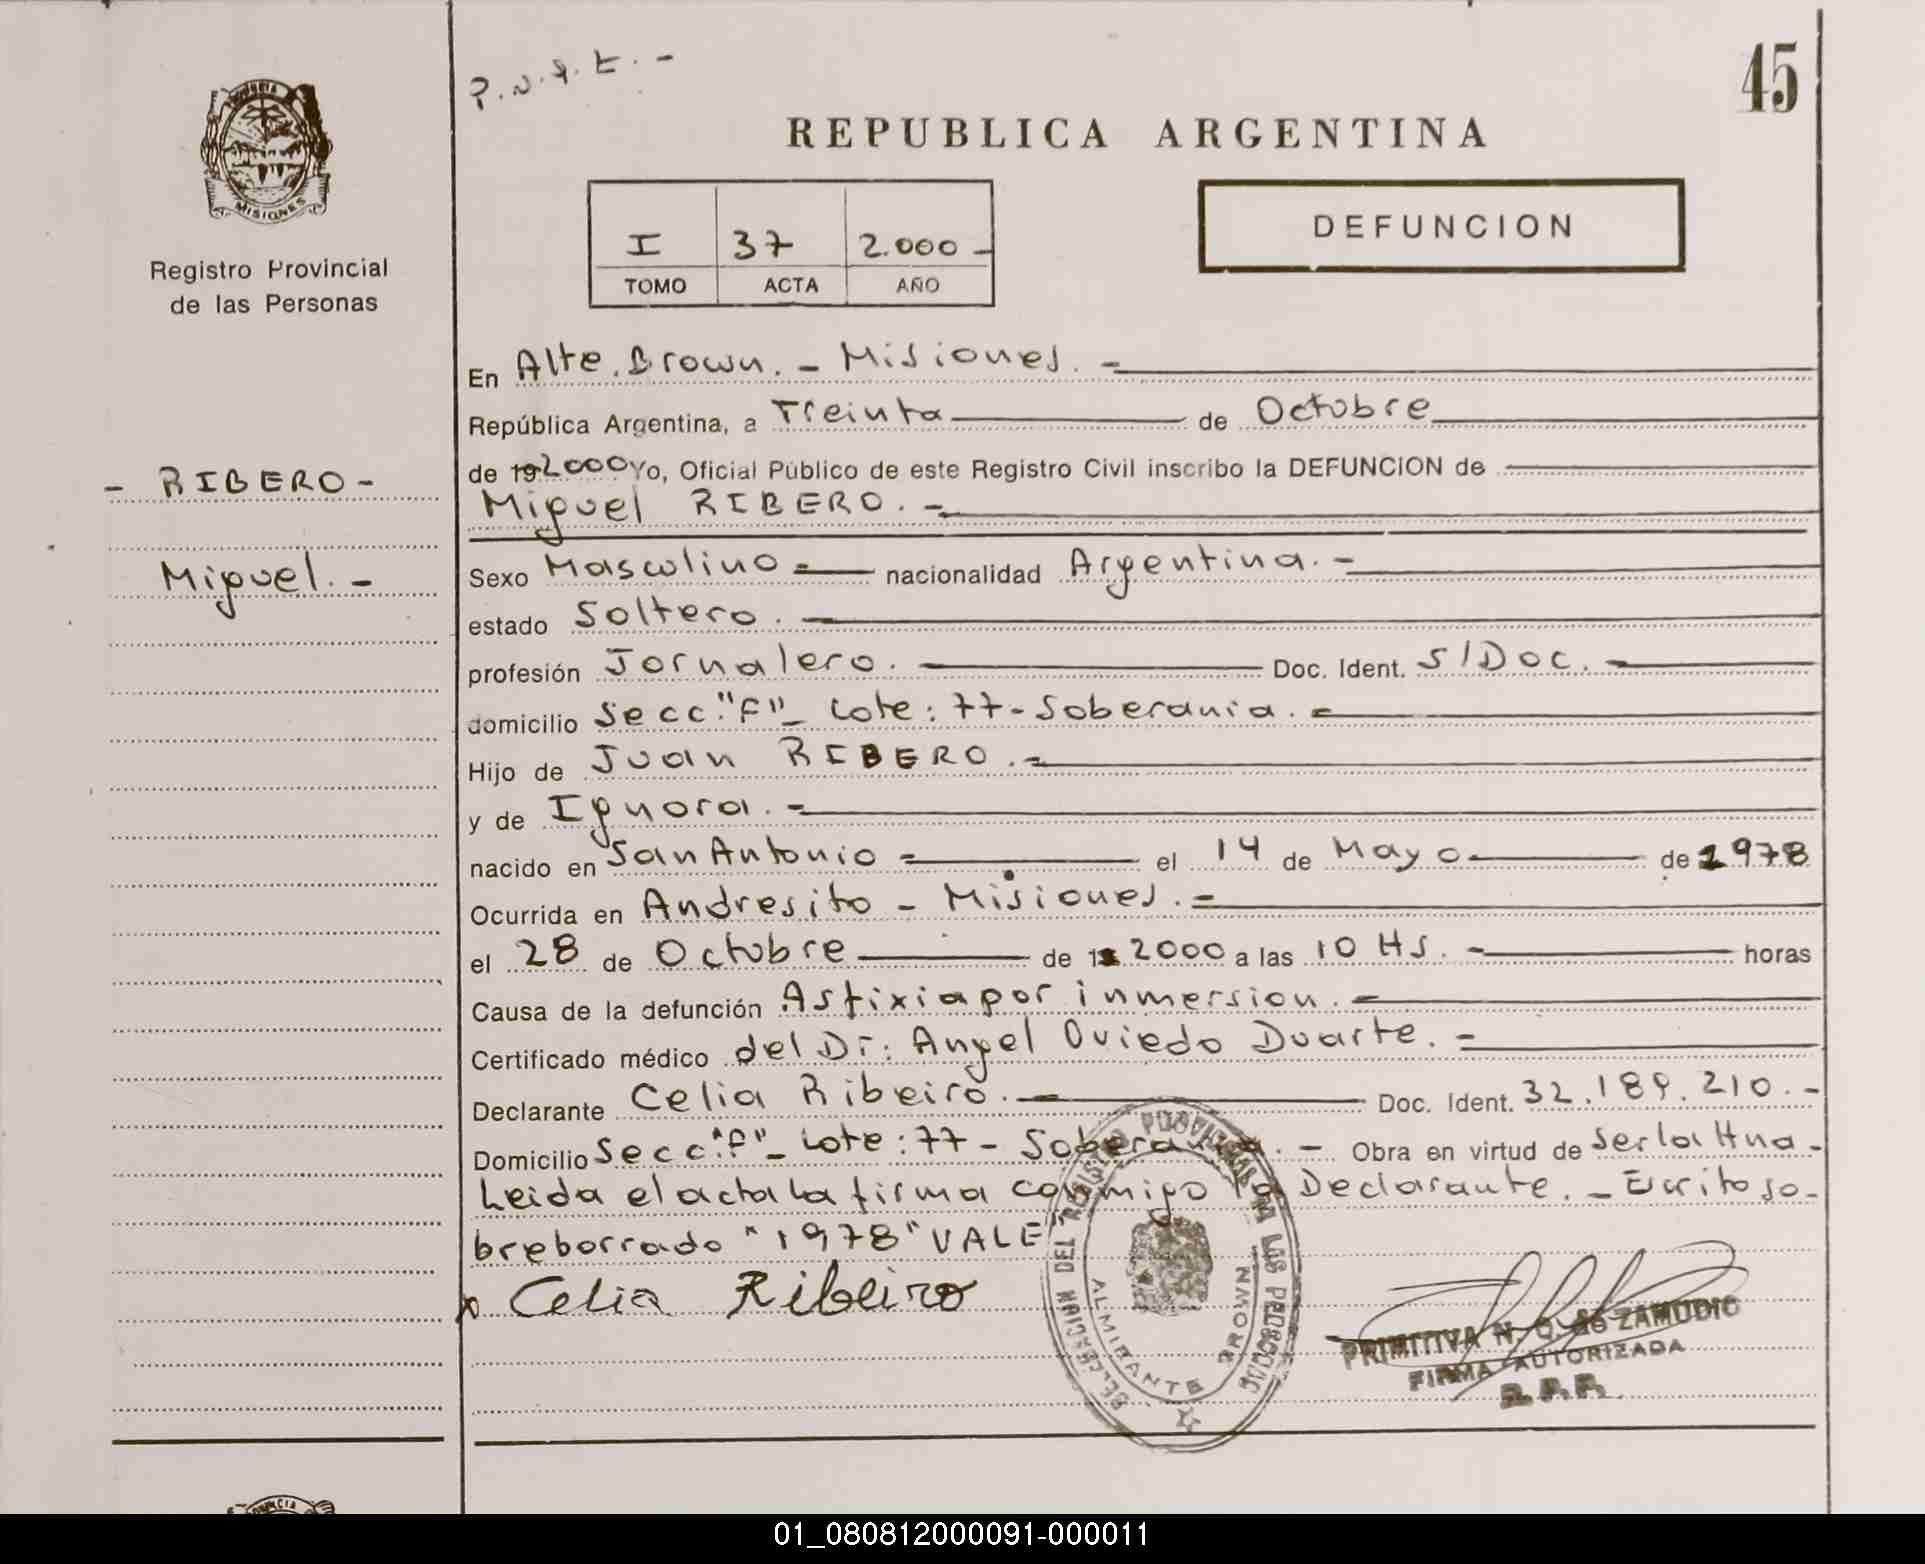 P.N.A.E.-
45
REPUBLICA ARGENTINA
I 37 2.000-
TOMO ACTA AÑO
DEFUNCION
PROVINCIA
MISIONES
Registro Provincial
de las Personas
- RIBERO -
Miguel.-
En Alte. Brown. - Misiones.-
República Argentina, a Treinta de Octubre
de 19 2000 Yo, Oficial Público de este Registro Civil inscribo la DEFUNCION de
Miguel RIBERO.-
Sexo Masculino = nacionalidad Argentina.-
estado Soltero.
profesión Jornalero. Doc. Ident. S/Doc.-
domicilio Secc. "F" - Lote: 77 - Soberania.=
Hijo de Juan RIBERO.-
y de Ignora.=
nacido en San Antonio = el 14 de Mayo de 1978
Ocurrida en Andresito - Misiones.=
el 28 de Octubre de 1 2000 a las 10 Hs.- horas
Causa de la defunción Asfixia por inmersion.=
Certificado médico del Dr: Angel Oviedo Duarte.=
Declarante Celia Ribeiro.- Doc. Ident. 32.189.210.-
Domicilio Secc. "F" - Lote: 77 - Soberania.- Obra en virtud de ser la Hna-
Leida el acta la firma conmigo la Declarante. - Escrito so-
breborrado "1978" VALE
x Celia Ribeiro
DELEGACION DEL REGISTRO PROVINCIAL DE LAS PERSONAS
ALMIRANTE BROWN
PRIMITIVA N. Q. de ZAMUDIO
FIRMA AUTORIZADA
R. P. P.
01_080812000091-000011